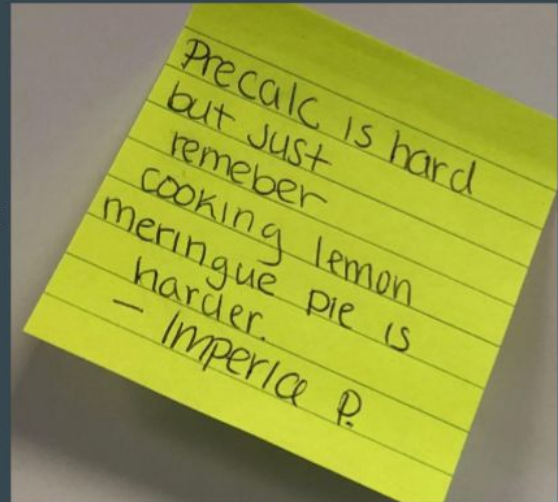 Precalc is hard
but just
remeber
cooking lemon
meringue pie is
harder.
- Imperia P.